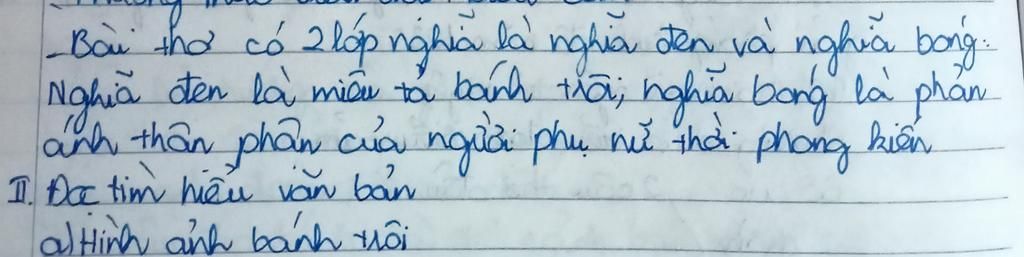 - Bài thơ có 2 lớp nghĩa là nghĩa đen và nghĩa bóng:
Nghĩa đen là miêu tả bánh trôi; nghĩa bóng là phản
ánh thân phận của người phụ nữ thời phong kiến
II. Đọc tìm hiểu văn bản
a) Hình ảnh bánh trôi